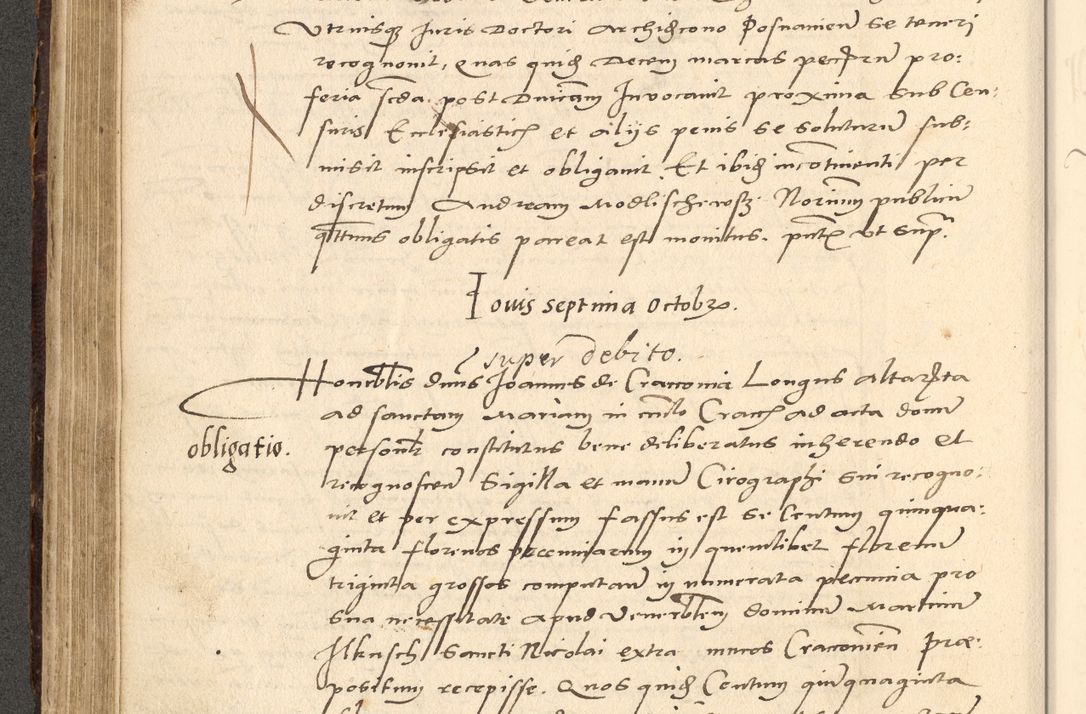 Utriusq Iuris Doctori Archidcono Posnanien se teneri
recognouit, quas quid Decem marcas pectarum pro:
feria scda post Dnicam Inuocauit proxima sub Cen:
suris Ecclesiastic et aliis penis se soluturum sub:
misit inscripsit et obligauit. Et ibid incontinenti per
discretum Andream Modlischewsk Notarium publicu
quatenus obligatis pareat est monitus. pntx ut sup.
Iouis septima Octobr.
super debito.
Honorblis dnus Ioannes de Cracouia Longus altarsta
ad sanctam Mariam in circlo Cracc ad acta domu
obligatio.
personlr constitutus bene deliberatus inherendo et
recognoscen Sigilla et manu Cirographi sui recogno:
uit et per expressum fassus est se Centum quinqua:
ginta florenos pecuniarum in quemlibet florenu
triginta grossos computan in numerata pecunia pro
sua necessitate apud Venerblem dominum Martinum
Ilkusch Sancti Nicolai extra muros Cracouien Præ:
positum recepisse. Quos quid Centum quinquaginta